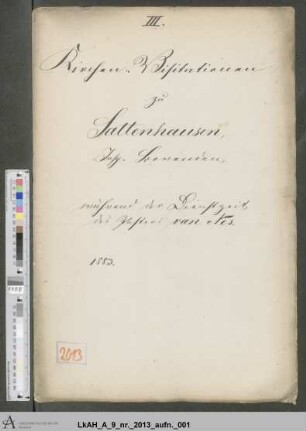 III.
Kirchen-Visitationen
zu
Sattenhausen,
während der Dienstzeit
des Pastors van Nes.
1883.
2013
LkAH_A_9_nr._2013_aufn._001